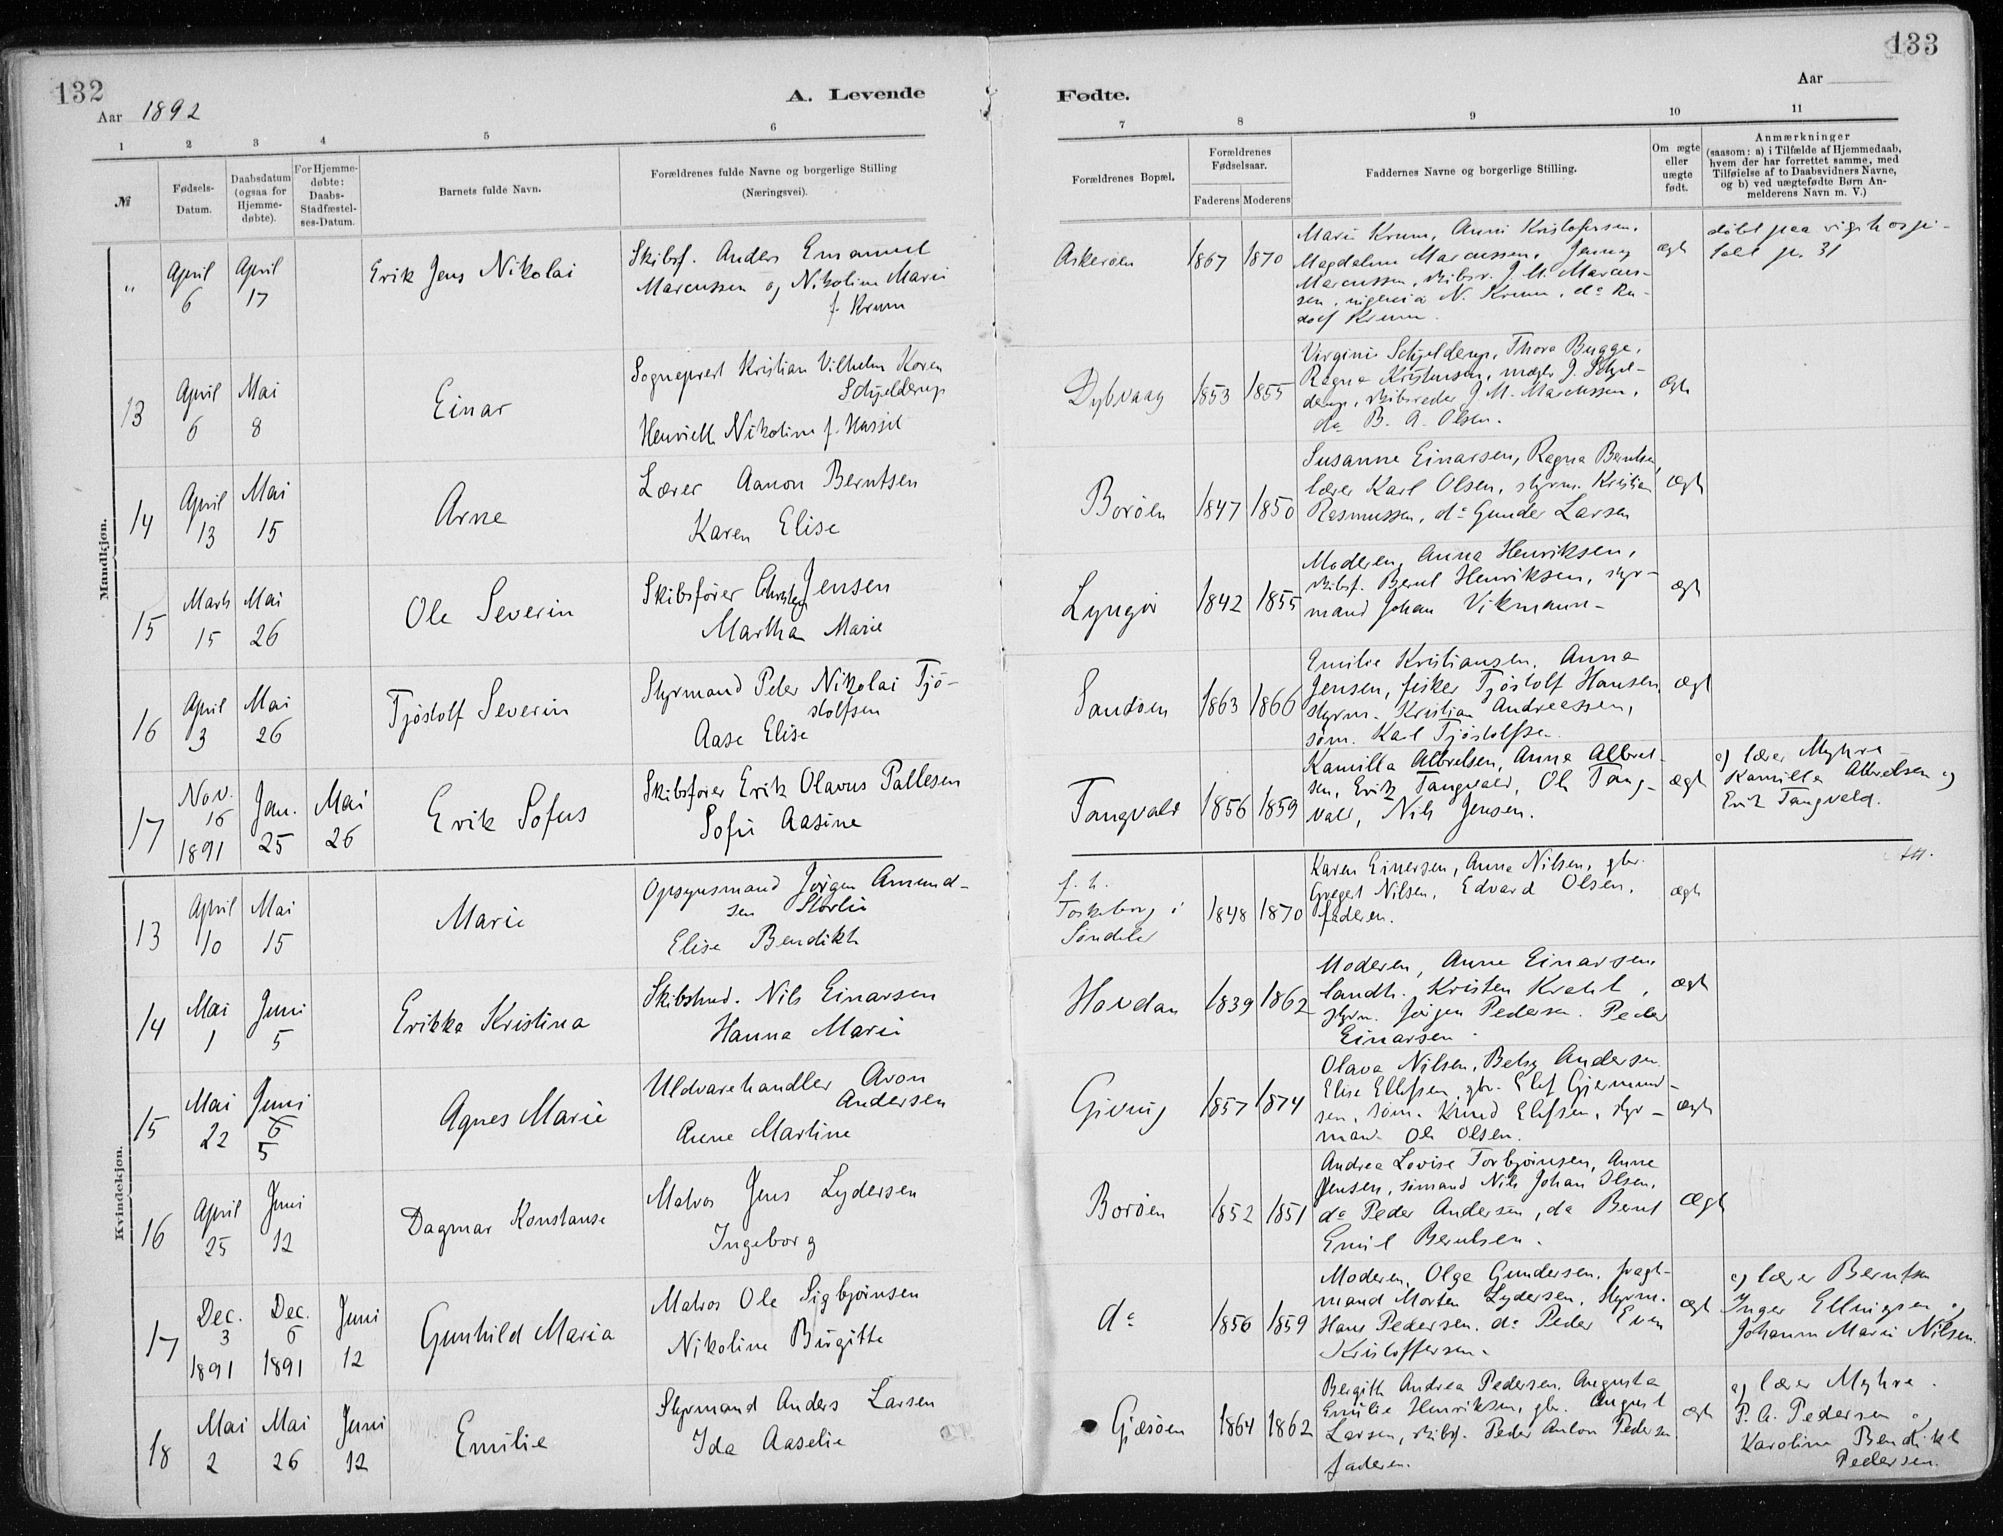 132
133
Aar 1892
A. Levende
Fødte.
Aar
1 2 3 4 5 6
7 8 9 10 11
№
Fødsels-
Datum.
Daabsdatum
(ogsaa for
Hjemme-
døbte).
For Hjemme-
døbte:
Daabs-
Stadfæstel-
ses-Datum.
Barnets fulde Navn.
Forældrenes fulde Navne og borgerlige Stilling
(Næringsvei).
Forældrenes Bopæl.
Forældrenes
Fødselsaar.
Faderens Moderens
Faddernes Navne og borgerlige Stilling.
Om ægte
eller
uægte
født.
Anmærkninger
(saasom: a) i Tilfælde af Hjemmedaab,
hvem der har forrettet samme, med
Tilføielse af to Daabsvidners Navne,
og b) ved uægtefødte Børn An-
melderens Navn m. V.)
Mandkjøn.
"
April
6
April
17
Erik Jens Nikolai
Skibsf. Anders Emanuel
Marcussen og Nikoline Marie
f. Krum
Askerøen
1867
1870
Marie Krum, Anni Kristofersen,
Magdalene Marcussen, Jenny
Marcussen, skibsr. J. M. Marcus-
sen, N. Krum, do Ru-
dolf Krum.
ægt
døbt paa rigshospi-
talet
31
13
April
6
Mai
8
Einar
Sogneprest Kristian Vilhelm Koren
Schjelderup
Henriette Nikoline f. Hassel
Dybvaag
1853
1855
Virginie Schjelderup, Thora Bugge,
Ragna Kristensen, mægler J. Schjel-
derup, skibsreder J. M. Marcussen,
do B. A. Olsen.
Ægte
14
April
13
Mai
15
Arne
Lærer Aanon Berntsen
Karen Elise
Borøen
1847
1850
Susanne Einarsen, Ragna Berntsen,
lærer Karl Olsen, styrm. Kristian
Rasmussen, do Gunder Larsen
ægt
15
Marts
15
Mai
26
Ole Severin
Skibsfører Christen Jensen
Martha Marie
Lyngør
1842
1855
Moderen, Anna Henriksen,
skibsf. Bernt Henriksen, styr-
mand Johan Vikmann-
ægt
16
April
3
Mai
26
Tjöstolf Severin
Styrmand Peder Nikolai Tjö-
stolfsen
Aase Elise
Sandøen
1863
1866
Emilie Kristiansen, Anna
Jensen, fisker Tjöstolf Hansen,
styrm. Kristian Andreassen,
søm. Karl Tjöstolfsen.
ægt
17
Nov.
16
1891
Jan.
25
Mai
26
Erik Sofus
Skibsfører Erik Olavus Pallesen
Sofie Aasine
Tangvald
1856
1859
Kamilla Albretsen, Anna Albret-
sen, Erik Tangvald, Ole Tang-
vald, Nils Jensen.
ægt
a) lærer Myhre
Kamilla Albretsen og
Erik Tangvald.
Kvindekjøn.
13
April
10
Mai
15
Marie
Opsynsmand Jørgen Amund-
sen Storlie
Elise Bendikte
f. t.
Torskeberg i
Søndeled
1848
1870
Karen Einersen, Anna Nilsen, gbr.
Gregert Nilsen, Edvard Olsen,
faderen.
ægt
14
Mai
1
Juni
5
Erikka Kristina
Skibstmd. Nils Einarsen
Hanna Marie
Havdan
1839
1862
Moderen, Anne Einarsen,
landh. Kristen Krahl,
styrm. Jörgen Pedersen. Peder
Einarsen
ægt
15
Mai
22
Juni
6
5
Agnes Marie
Uldvarehandler Aron
Andersen
Anne Martine
Giving
1857
1874
Olava Nilsen, Betsy Andersen
Elise Ellefsen, gbr. Elef Gjermund-
sen, søm. Knud Elefsen, styr-
mand Ole Olsen.
ægt
16
April
25
Juni
12
Dagmar Konstanse
Matros Jens Lydersen
Ingeborg
Borøen
1852
1851
Andrea Lovise Torbjörnsen, Anne
Jensen, sømand Nils Johan Olsen,
do Peder Andersen, do Bernt
Emil Berntsen.
Ægt
17
Dec.
3
1891
Dec.
6
1891
Juni
12
Gunhild Maria
Matros Ole Sigbjørnsen
Nikoline Birgitte
do
1856
1859
Moderen, Olga Gundersen, fragt-
mand Morten Lydersen, styrm.
Hans Pedersen. do Peder Even
Kristoffersen.
ægt
a) lærer Berntsen
Inger Ellingsen og
Johanne Marie Nilsen.
18
Mai
2
Mai
26
Juni
12
Emilie
Styrmand Anders Larsen
Ida Aaselie
Gjæsøen
1864
1862
Bergitte Andrea Pedersen, Augusta
Emilie Henriksen, gbr. August
Larsen, skibsf. Peder Anton Pedersen
faderen.
ægt
a) lærer Myhre.
P. A. Pedersen
Karoline Bendikte
Pedersen.